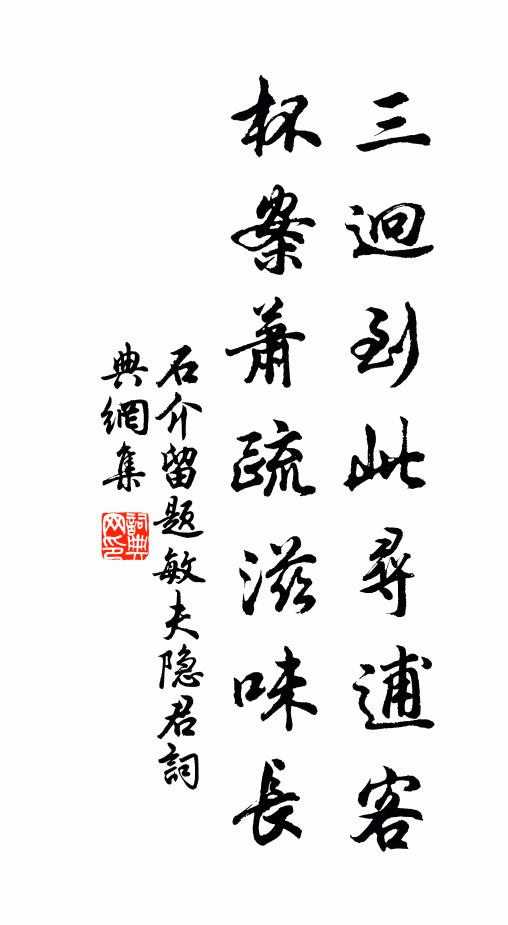 三迴到此尋逋客
杯案蕭疏滋味長
石介留題敏夫隐君詞
典網集
詞典網印